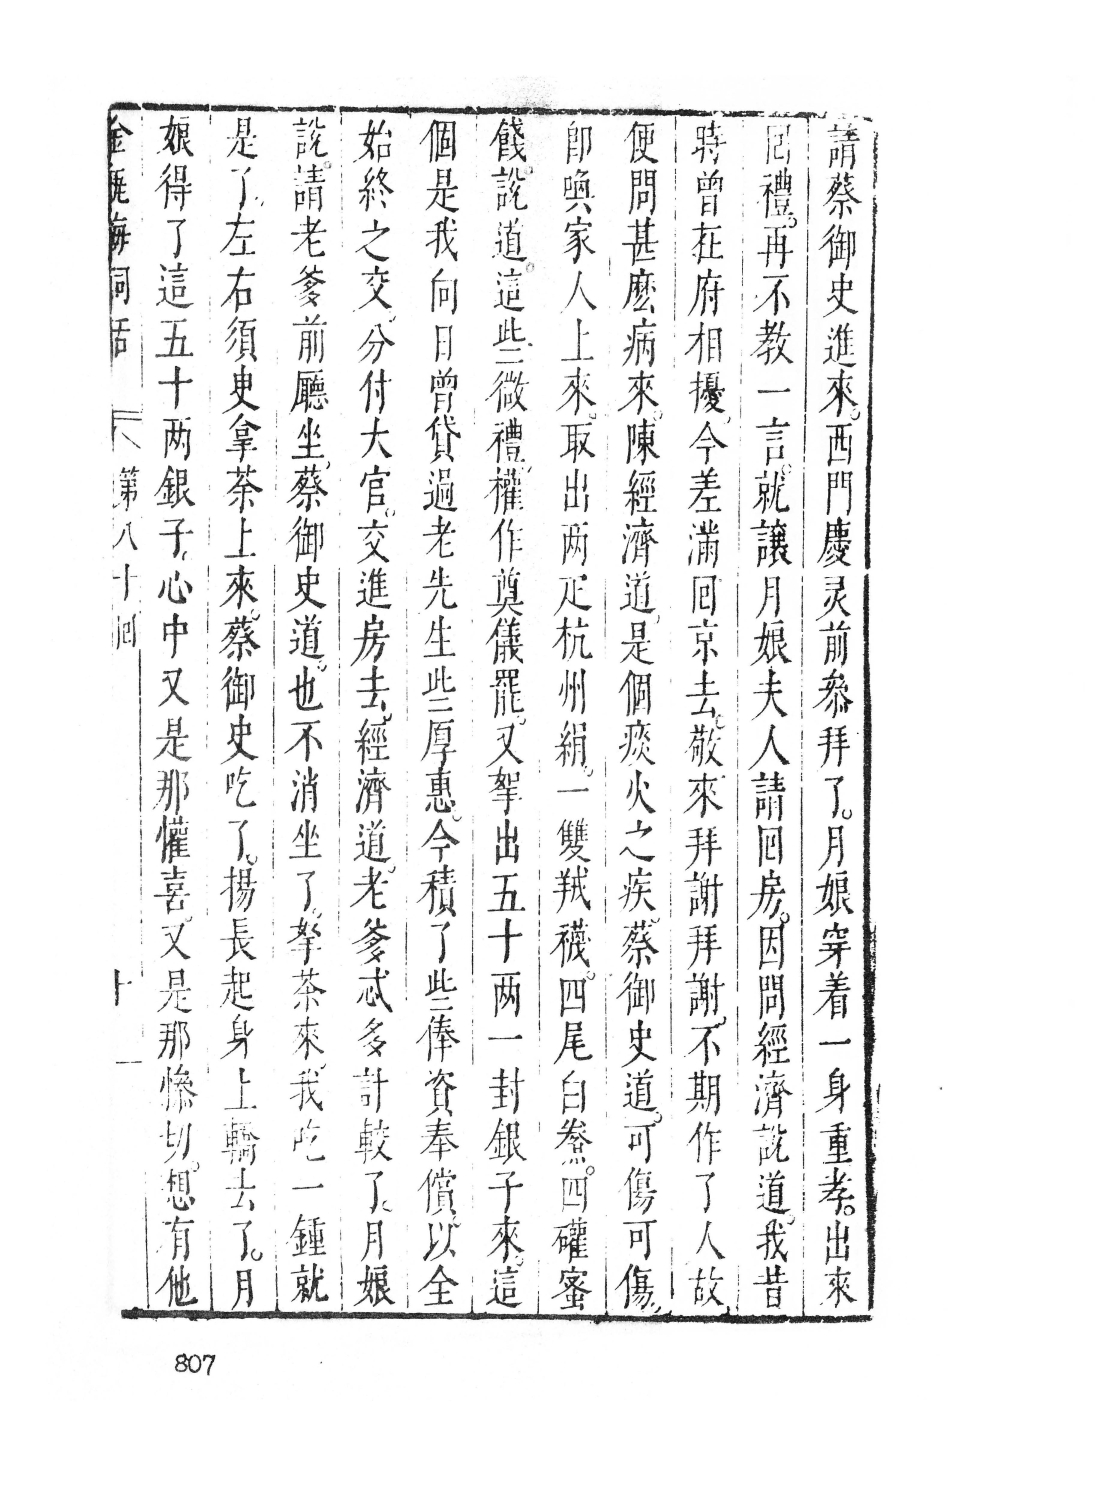 請蔡御史進來。西門慶灵前叅拜了。月娘穿着一身重孝。出來
囘禮。再不教一言。就讓月娘夫人請囘房。因問經濟說道。我昔
時曾在府相擾。今差滿囘京去。敬來拜謝拜謝。不期作了人故。
便問甚麽病來。陳經濟道。是個痰火之疾。蔡御史道。可傷可傷。
卽喚家人上來。取出兩疋杭州絹。一雙羢襪。四尾白鯗。四礶蜜
餞。說道。這些微禮。權作奠儀罷。又拏出五十兩一封銀子來。這
個是我向日曾貸過老先生些厚惠。今積了些俸資奉償。以全
始終之交。分付大官。交進房去。經濟道。老爹忒多計較了。月娘
說。請老爹前廳坐。蔡御史道。也不消坐了。拏茶來。我吃一鍾就
是了。左右須臾拿茶上來。蔡御史吃了。揚長起身上轎去了。月
娘得了這五十兩銀子。心中又是那懽喜。又是那慘切。想有他
金瓶梅詞話 第八十囘 十一
807